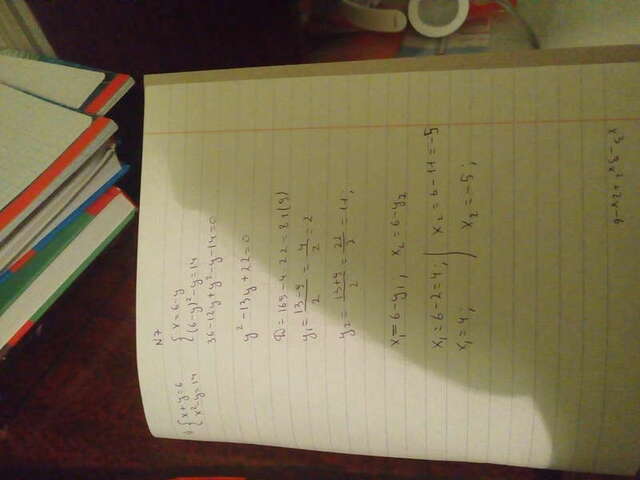 N7
{ x+y=6
{ x²-y=14
{ x=6-y
{ (6-y)²-y=14
36-12y+y²-y-14=0
y²-13y+22=0
D=169-4·22=81(9)
y₁=13-9/2=4/2=2
y₂=13+9/2=22/2=11;
x₁=6-y₁, x₂=6-y₂
x₁=6-2=4; x₂=6-11=-5
x₁=4; x₂=-5;
x³-3x²+2x-6